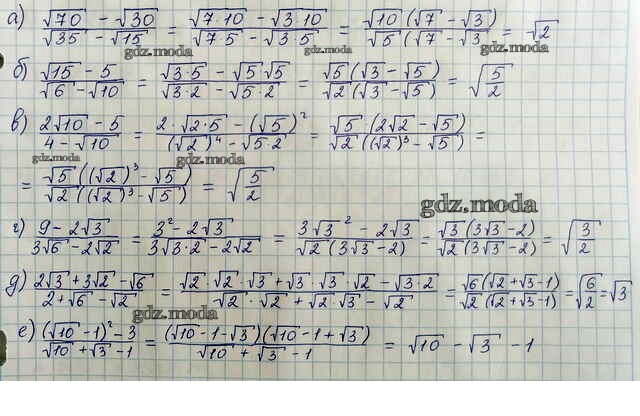 а) (√70 − √30)/(√35 − √15) = (√7·10 − √3·10)/(√7·5 − √3·5) = (√10 (√7 − √3))/(√5 (√7 − √3)) = √2
gdz.moda gdz.moda
б) (√15 − 5)/(√6 − √10) = (√3·5 − √5 √5)/(√3·2 − √5·2) = (√5 (√3 − √5))/(√2 (√3 − √5)) = √(5/2)
в) (2√10 − 5)/(4 − √10) = (2·√2·5 − (√5)²)/((√2)⁴ − √5·2) = (√5 (2√2 − √5))/(√2 ((√2)³ − √5)) =
gdz.moda gdz.moda
= (√5 ((√2)³ − √5))/(√2 ((√2)³ − √5)) = √(5/2)
gdz.moda
г) (9 − 2√3)/(3√6 − 2√2) = (3² − 2√3)/(3√3·2 − 2√2) = (3√3² − 2√3)/(√2 (3√3 − 2)) = (√3 (3√3 − 2))/(√2 (3√3 − 2)) = √(3/2)
д) (2√3 + 3√2 − √6)/(2 + √6 − √2) = (√2·√2·√3 + √3·√3·√2 − √3·2)/(√2·√2 + √2·√3 − √2) = (√6 (√2 + √3 − 1))/(√2 (√2 + √3 − 1)) = √(6/2) = √3
gdz.moda
е) ((√10 − 1)² − 3)/(√10 + √3 − 1) = ((√10 − 1 − √3)(√10 − 1 + √3))/(√10 + √3 − 1) = √10 − √3 − 1